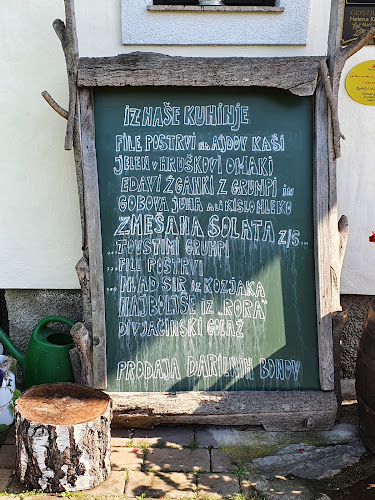 IZ NAŠE KUHINJE
FILE POSTRVI na AJDOVI KAŠI
JELEN V HRUŠKOVI OMAKI
EDAVI ŽGANKI Z GRUMPI in
GOBOVA JUHA ali KISLO MLEKO
ZMEŠANA SOLATA Z/S...
...TOUSTIMI GRUMPI
...FILE POSTRVI
...MLAD SIR IZ KOZJAKA
NAJBOLJŠE IZ „RORA”
DIVJAČINSKI GOLAŽ
PRODAJA DARILNIH BONOV
Helena K